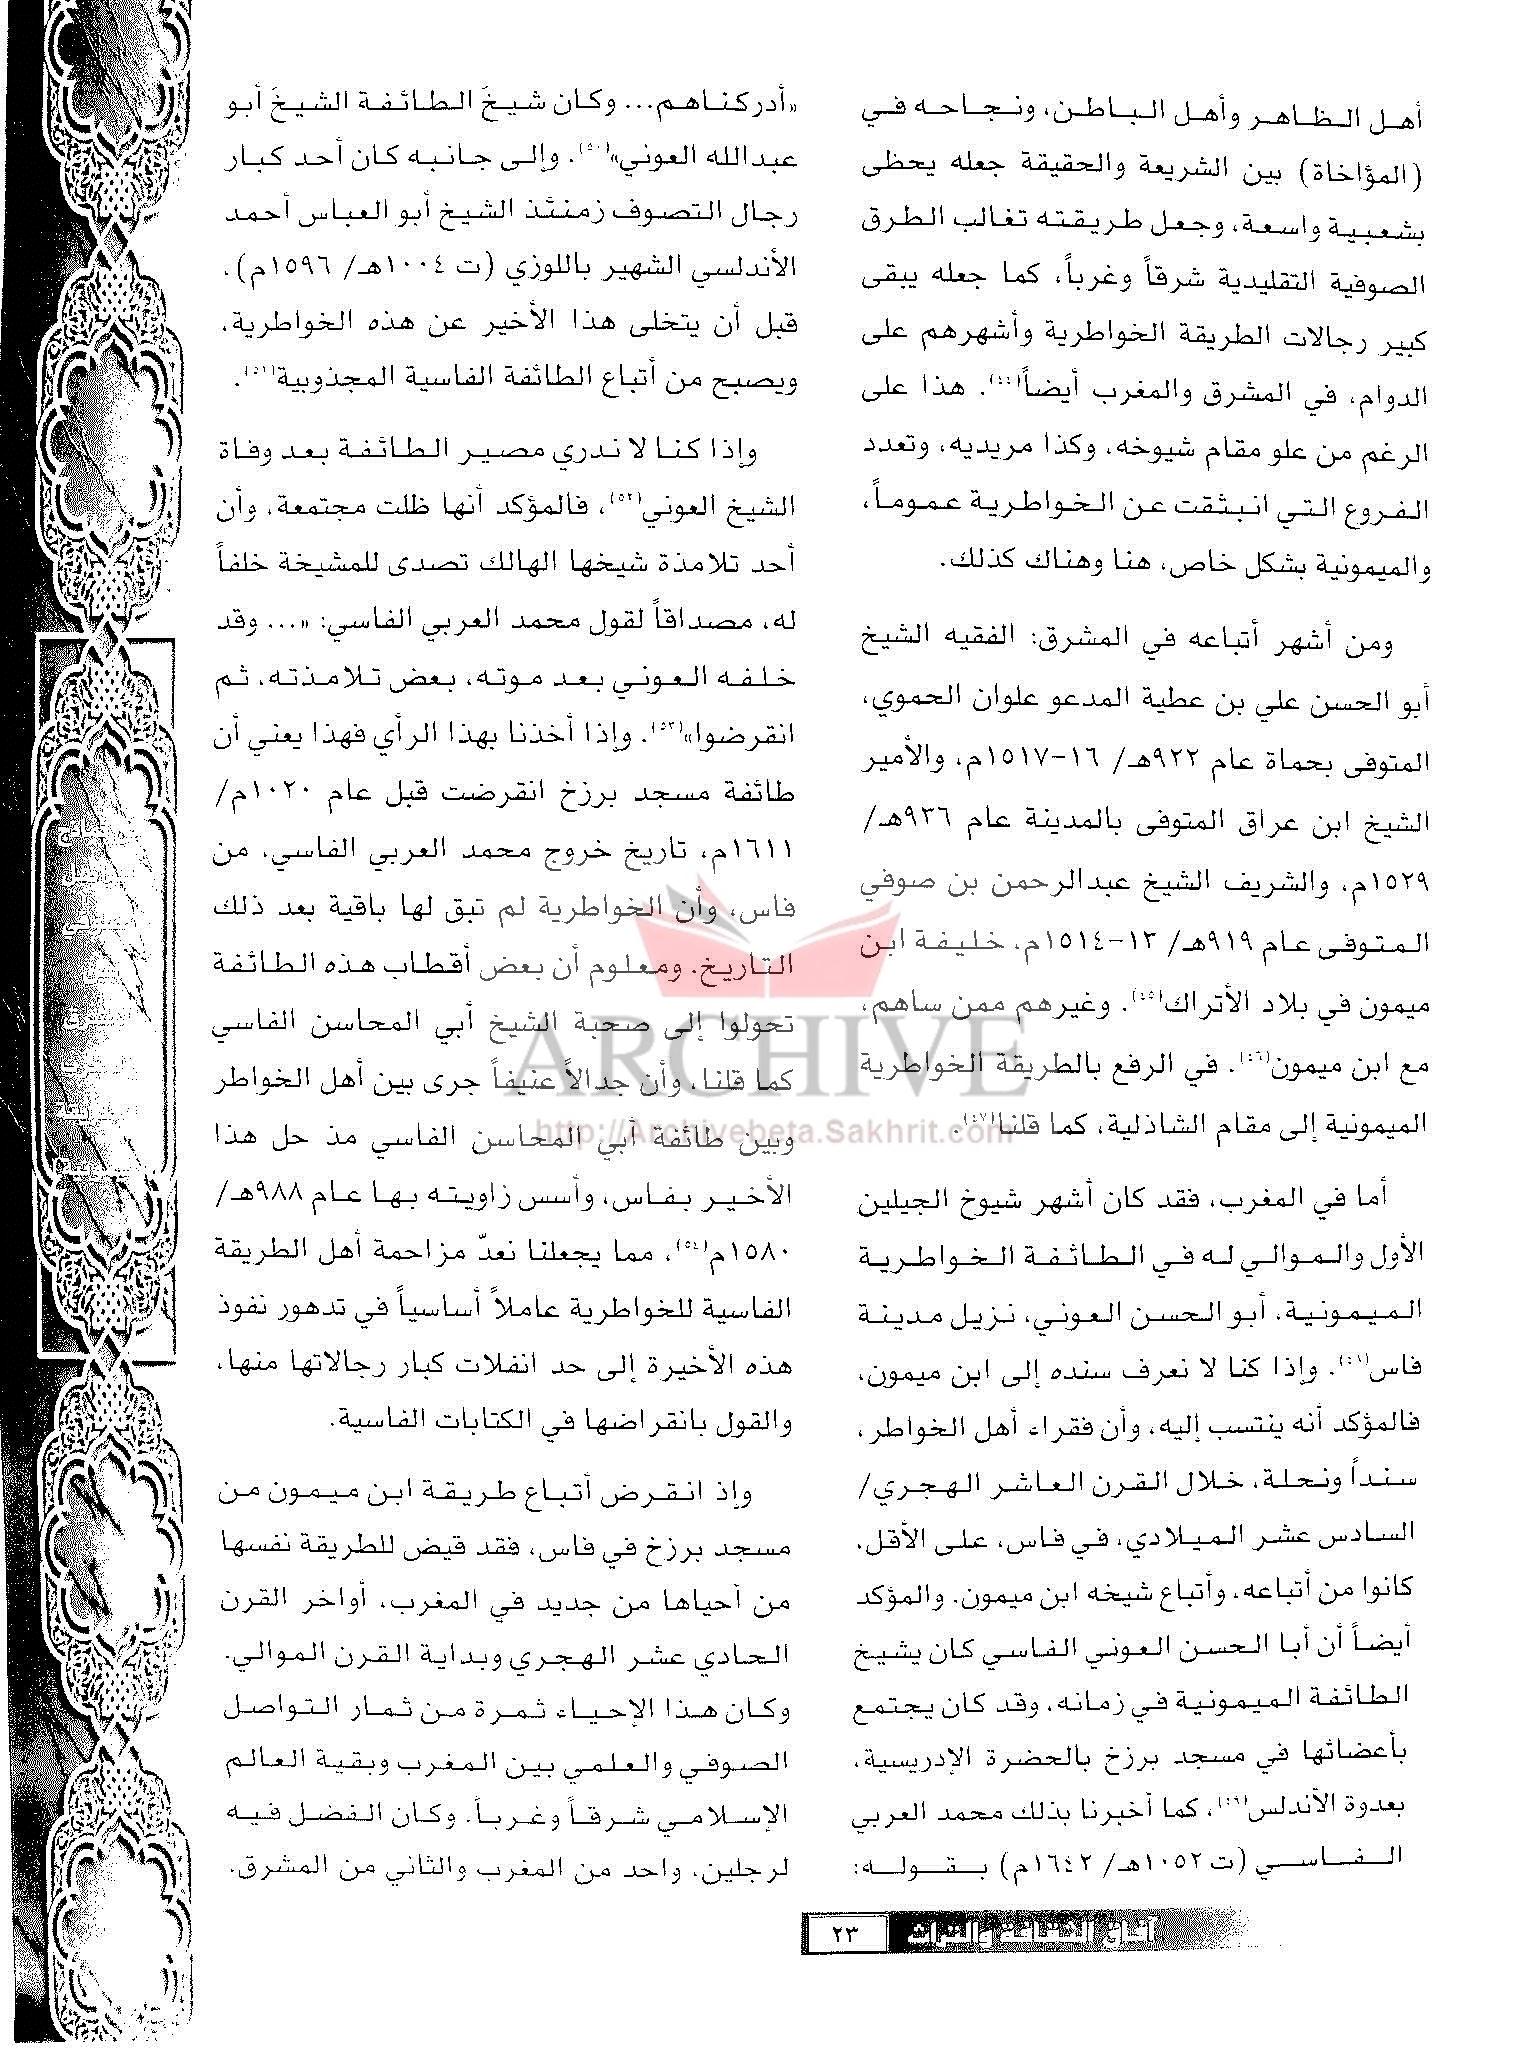 أهل الظاهر وأهل الباطن، ونجاحه في
(المؤاخاة) بين الشريعة والحقيقة جعله يحظى
بشعبية واسعة، وجعل طريقته تغالب الطرق
الصوفية التقليدية شرقاً وغرباً، كما جعله يبقى
كبير رجالات الطريقة الخواطرية وأشهرهم على
الدوام، في المشرق والمغرب أيضاً(٤٤). هذا على
الرغم من علو مقام شيوخه، وكذا مريديه، وتعدد
الفروع التي انبثقت عن الخواطرية عموماً،
والميمونية بشكل خاص، هنا وهناك كذلك.
ومن أشهر أتباعه في المشرق: الفقيه الشيخ
أبو الحسن علي بن عطية المدعو علوان الحموي،
المتوفى بحماة عام ٩٢٢هـ/ ١٦-١٥١٧م، والأمير
الشيخ ابن عراق المتوفى بالمدينة عام ٩٣٦هـ/
١٥٢٩م، والشريف الشيخ عبدالرحمن بن صوفي
المتوفى عام ٩١٩هـ/ ١٣-١٥١٤م، خليفة ابن
ميمون في بلاد الأتراك(٤٥). وغيرهم ممن ساهم،
مع ابن ميمون(٤٦). في الرفع بالطريقة الخواطرية
الميمونية إلى مقام الشاذلية، كما قلنا(٤٧).
أما في المغرب، فقد كان أشهر شيوخ الجيلين
الأول والموالي له في الطائفة الخواطرية
الميمونية، أبو الحسن العوني، نزيل مدينة
فاس(٤٨). وإذا كنا لا نعرف سنده إلى ابن ميمون،
فالمؤكد أنه ينتسب إليه، وأن فقراء أهل الخواطر،
سنداً ونحلة، خلال القرن العاشر الهجري/
السادس عشر الميلادي، في فاس، على الأقل،
كانوا من أتباعه، وأتباع شيخه ابن ميمون. والمؤكد
أيضاً أن أبا الحسن العوني الفاسي كان يشيخ
الطائفة الميمونية في زمانه، وقد كان يجتمع
بأعضائها في مسجد برزخ بالحضرة الإدريسية،
بعدوة الأندلس(٤٩)، كما أخبرنا بذلك محمد العربي
الفاسي (ت ١٠٥٢هـ/ ١٦٤٢م) بقوله:
«أدركناهم... وكان شيخَ الطائفة الشيخَ أبو
عبدالله العوني»(٥٠). وإلى جانبه كان أحد كبار
رجال التصوف زمنئذ الشيخ أبو العباس أحمد
الأندلسي الشهير باللوزي (ت ١٠٠٤هـ/ ١٥٩٦م)،
قبل أن يتخلى هذا الأخير عن هذه الخواطرية،
ويصبح من أتباع الطائفة الفاسية المجذوبية(٥١).
وإذا كنا لا ندري مصير الطائفة بعد وفاة
الشيخ العوني(٥٢)، فالمؤكد أنها ظلت مجتمعة، وأن
أحد تلامذة شيخها الهالك تصدى للمشيخة خلفاً
له، مصداقاً لقول محمد العربي الفاسي: «... وقد
خلفه العوني بعد موته، بعض تلامذته، ثم
انقرضوا»(٥٣). وإذا أخذنا بهذا الرأي فهذا يعني أن
طائفة مسجد برزخ انقرضت قبل عام ١٠٢٠م/
١٦١١م، تاريخ خروج محمد العربي الفاسي، من
فاس، وأن الخواطرية لم تبق لها باقية بعد ذلك
التاريخ. ومعلوم أن بعض أقطاب هذه الطائفة
تحولوا إلى صحبة الشيخ أبي المحاسن الفاسي
كما قلنا، وأن جدالاً عنيفاً جرى بين أهل الخواطر
وبين طائفة أبي المحاسن الفاسي مذ حل هذا
الأخير بفاس، وأسس زاويته بها عام ٩٨٨هـ/
١٥٨٠م(٥٤)، مما يجعلنا نعدّ مزاحمة أهل الطريقة
الفاسية للخواطرية عاملاً أساسياً في تدهور نفوذ
هذه الأخيرة إلى حد انفلات كبار رجالاتها منها،
والقول بانقراضها في الكتابات الفاسية.
وإذ انقرض أتباع طريقة ابن ميمون من
مسجد برزخ في فاس، فقد قيض للطريقة نفسها
من أحياها من جديد في المغرب، أواخر القرن
الحادي عشر الهجري وبداية القرن الموالي.
وكان هذا الإحياء ثمرة من ثمار التواصل
الصوفي والعلمي بين المغرب وبقية العالم
الإسلامي شرقاً وغرباً. وكان الفضل فيه
لرجلين، واحد من المغرب والثاني من المشرق.
ARCHIVE
http://Archivebeta.Sakhrit.com
آفاق الثقافة والتراث ٢٣